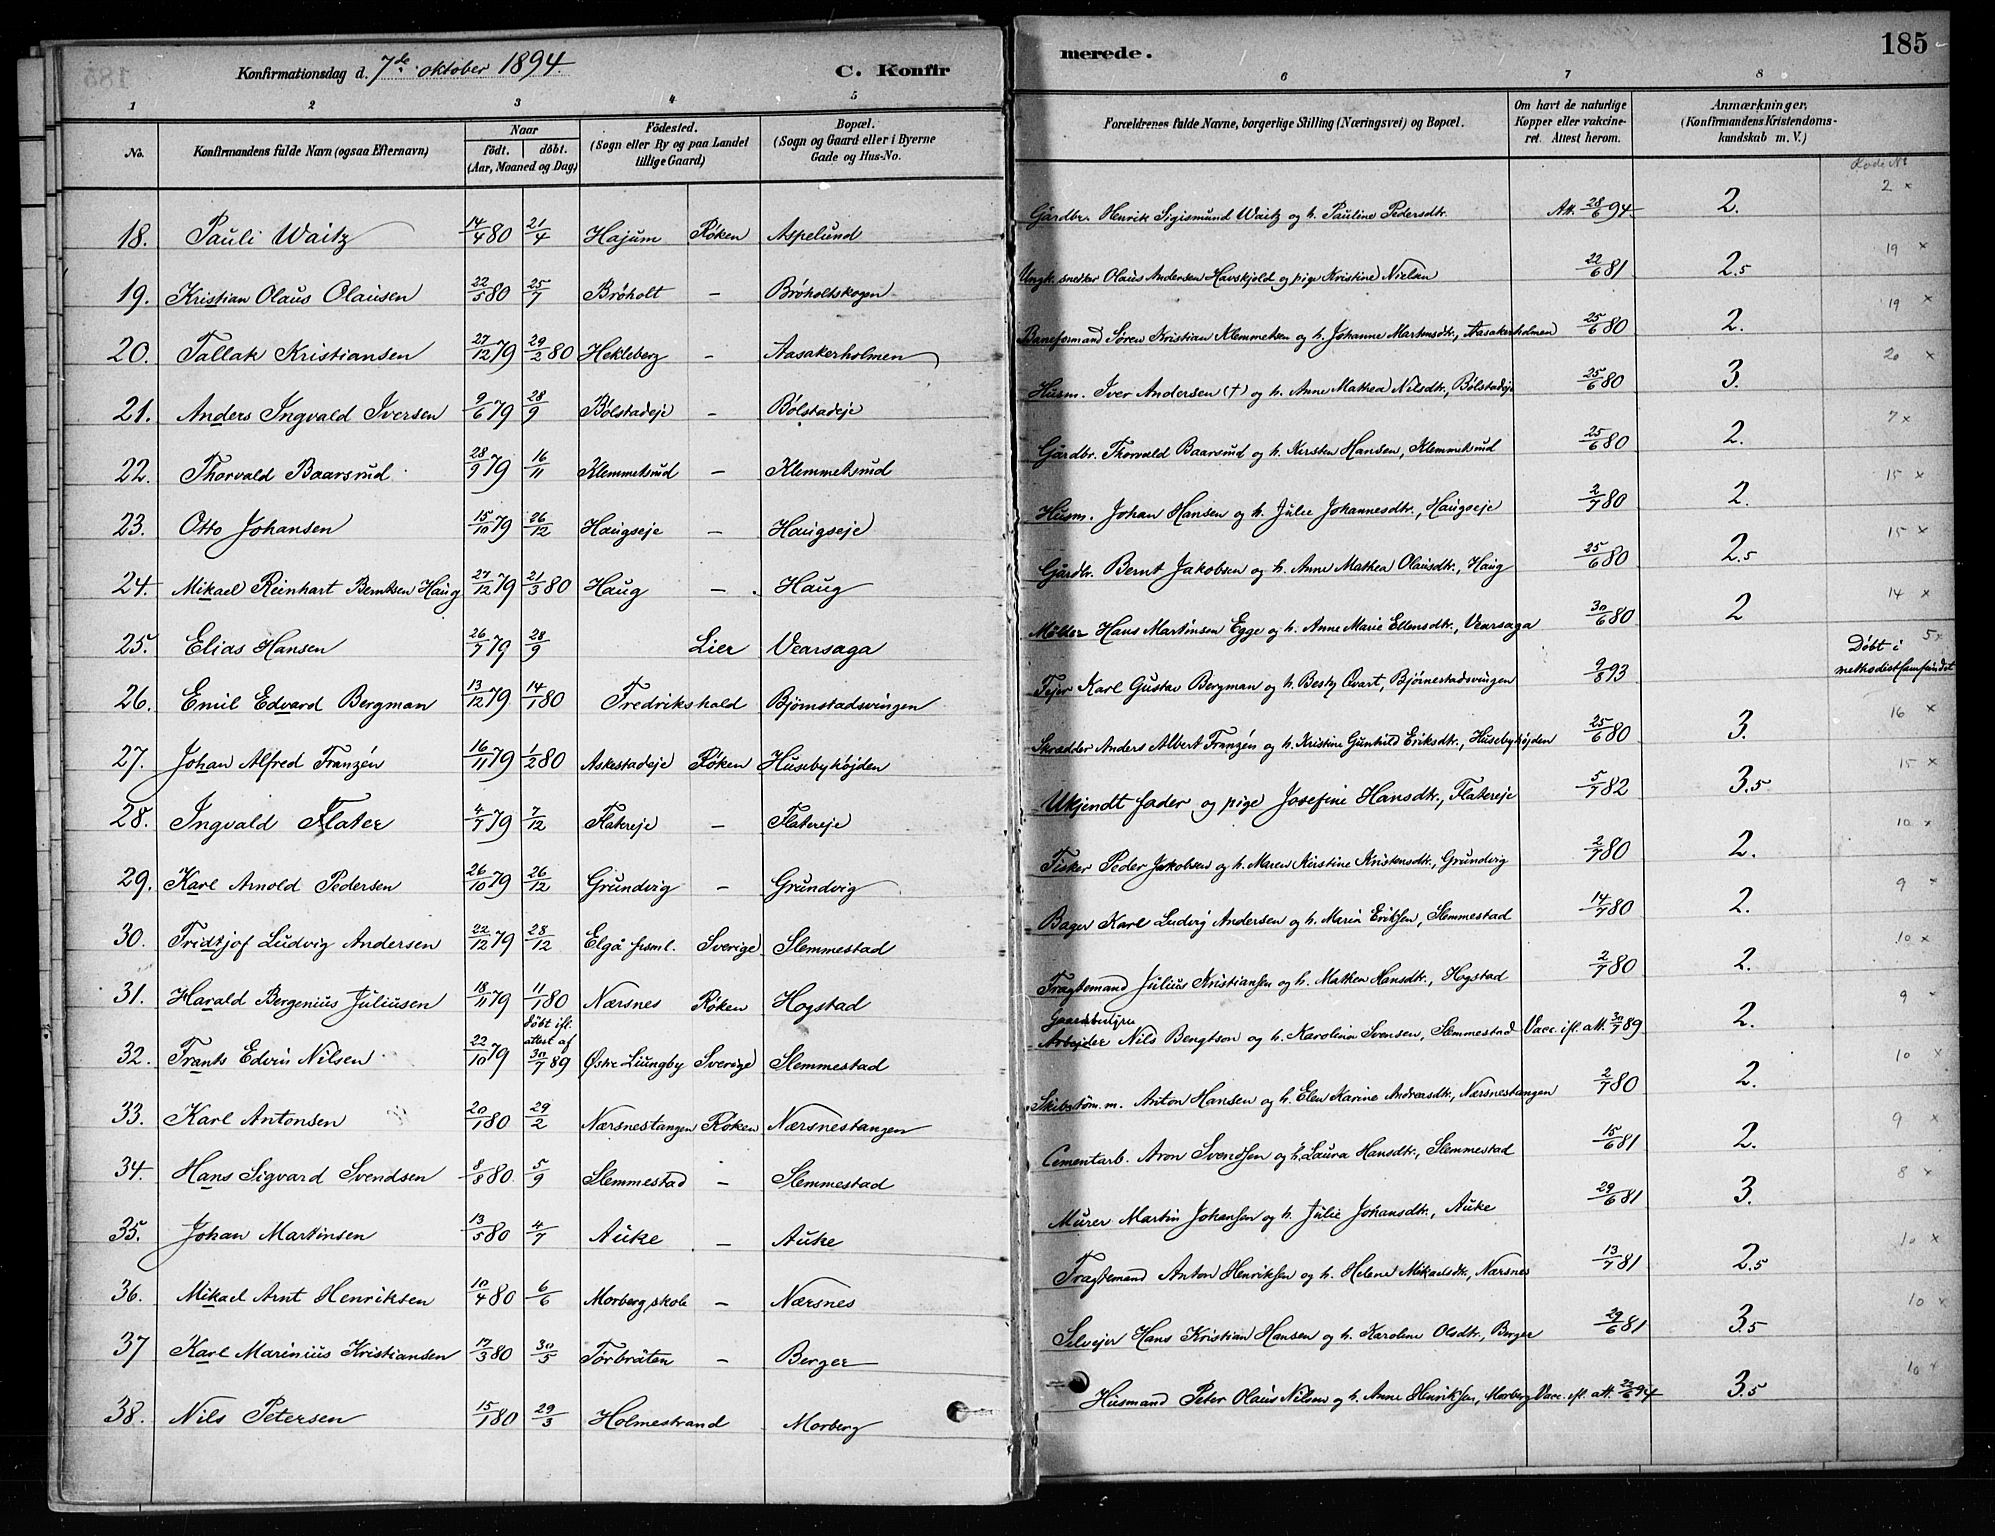 Konfirmationsdag d. 7de oktober 1894. C. Konfir
merede. 185
1 2 3 4 5 6 7 8
No. Konfirmandens fulde Navn (ogsaa Efternavn) Naar født. døbt. (Aar, Maaned og Dag) Födested. (Sogn eller By og paa Landet tillige Gaard) Bopæl. (Sogn og Gaard eller i Byerne Gade og Hus-No. Forældrenes fulde Navne, borgerlige Stilling (Næringsvei) og Bopæl. Om havt de naturlige Kopper eller vakcineret. Attest herom. Anmærkninger. (Konfirmandens Kristendomskundskab m. V.)
18. Pauli Waitz 14/4 80 21/4 Hajum Røken Aspelund Gårdbr. Henrik Sigismund Waitz og h. Pauline Pedersdtr. Att. 28/6 94 2. 2 x
19. Kristian Olaus Olausen 22/5 80 25/7 Brøholt - Brøholtskogen Ungk. snedker Olaus Andersen Havskjold og pige Kristine Nielsen 22/6 81 2.5 19 x
20. Tallak Kristiansen 27/12 79 29/2 80 Hekleberg - Aasakerholmen Baneformand Søren Kristian Klemmetsen og h. Johanne Martensdtr., Aasakerholmen 25/6 80 2. 19 x
21. Anders Ingvald Iversen 9/6 79 28/9 Bølstadeje - Bølstadeje Husm. Iver Andersen (†) og h. Anne Mathea Nilsdtr., Bølstadeje 25/6 80 3. 20 x
22. Thorvald Baarsrud 28/9 79 16/11 Klemmetsrud - Klemmetsrud Gårdbr. Thorvald Baarsrud og h. Kersten Hansen, Klemmetsrud 25/6 80 2. 7 x
23. Otto Johansen 15/10 79 26/12 Haugseje - Haugseje Husm. Johan Hansen og h. Julie Johannesdtr., Haugseje 2/7 80 2. 15 x
24. Mikael Reinhart Berntsen Haug 27/12 79 21/3 80 Haug - Haug Gårdbr. Bernt Jakobsen og h. Anne Mathea Olausdtr., Haug 25/6 80 2.5 15 x
25. Elias Hansen 26/7 79 28/9 Lier Vearsaga Møller Hans Martinsen Egge og h. Anne Marie Ellensdtr., Vearsaga 30/6 80 2 14 x
26. Emil Edvard Bergman 13/12 79 14/1 80 Fredrikshald Bjørnstadsvingen Fejer Karl Gustav Bergman og h. Besty Qvart, Bjørnestadsvingen 9/8 93 Døbt i methodistsamfundet 5 x
27. Johan Alfred Franzén 16/11 79 1/2 80 Askestadeje Røken Husebyhøjden Skrædder Anders Albert Franzén og h. Kristine Gunhild Eriksdtr., Husebyhøjden 25/6 80 3. 16 x
28. Ingvald Flater 4/7 79 7/12 Flatereje - Flatereje Ukjendt fader og pige Josefine Hansdtr., Flatereje 5/7 82 3.5 15 x
29. Karl Arnold Pedersen 26/10 79 26/12 Grundvig - Grundvig Fisker Peder Jakobsen og h. Maren Kirstine Kristensdtr., Grundvig 2/7 80 2. 10 x
30. Fridtjof Ludvig Andersen 22/12 79 28/12 Elgå frsml. Sverige Slemmestad Bager Karl Ludvig Andersen og h. Maria Eriksen, Slemmestad 14/7 80 2. 9 x
31. Harald Bergenius Juliusen 18/11 79 11/1 80 Nærsnes Røken Hogstad Fragtemand Julius Kristiansen og h. Mathea Hansdtr., Hogstad 2/7 80 2. 10 x
32. Frants Edvin Nilsen 22/10 79 døbt ifl. attest af 30/7 89 Østre Liungby Sverige Slemmestad Gaardsbestyrer Arbejder Nils Bengtson og h. Karolina Svensen, Slemmestad Vacc. ifl. att. 30/7 89 2. 9 x
33. Karl Antonsen 20/1 80 29/2 Nærsnestangen Røken Nærsnestangen Skibstøm.m. Anton Hansen og h. Elen Karine Andersdtr., Nærsnestangen 2/7 80 2. 10 x
34. Hans Sigvard Svendsen 8/8 80 5/9 Slemmestad - Slemmestad Cementarb. Aron Svendsen og h. Laura Hansdtr., Slemmestad 15/6 81 2. 9 x
35. Johan Martinsen 13/5 80 4/7 Auke - Auke Murer Martin Johansen og h. Julie Johansdtr., Auke 29/6 81 3. 8 x
36. Mikael Arnt Henriksen 10/4 80 6/6 Morberg skole - Nærsnes Fragtemand Anton Henriksen og h. Helene Mikaelsdtr., Nærsnes 13/7 81 2.5 10 x
37 Karl Marinius Kristiansen 17/3 80 30/5 Torbråten - Berger Selvejer Hans Kristian Hansen og h. Karoline Olsdtr., Berger 29/6 81 3.5 10 x
38. Nils Petersen 15/1 80 29/3 Holmestrand Morberg Husmand Peter Olaus Nilsen og h. Anne Henriksen, Morberg Vacc. ifl. att. 22/6 94 3.5 10 x